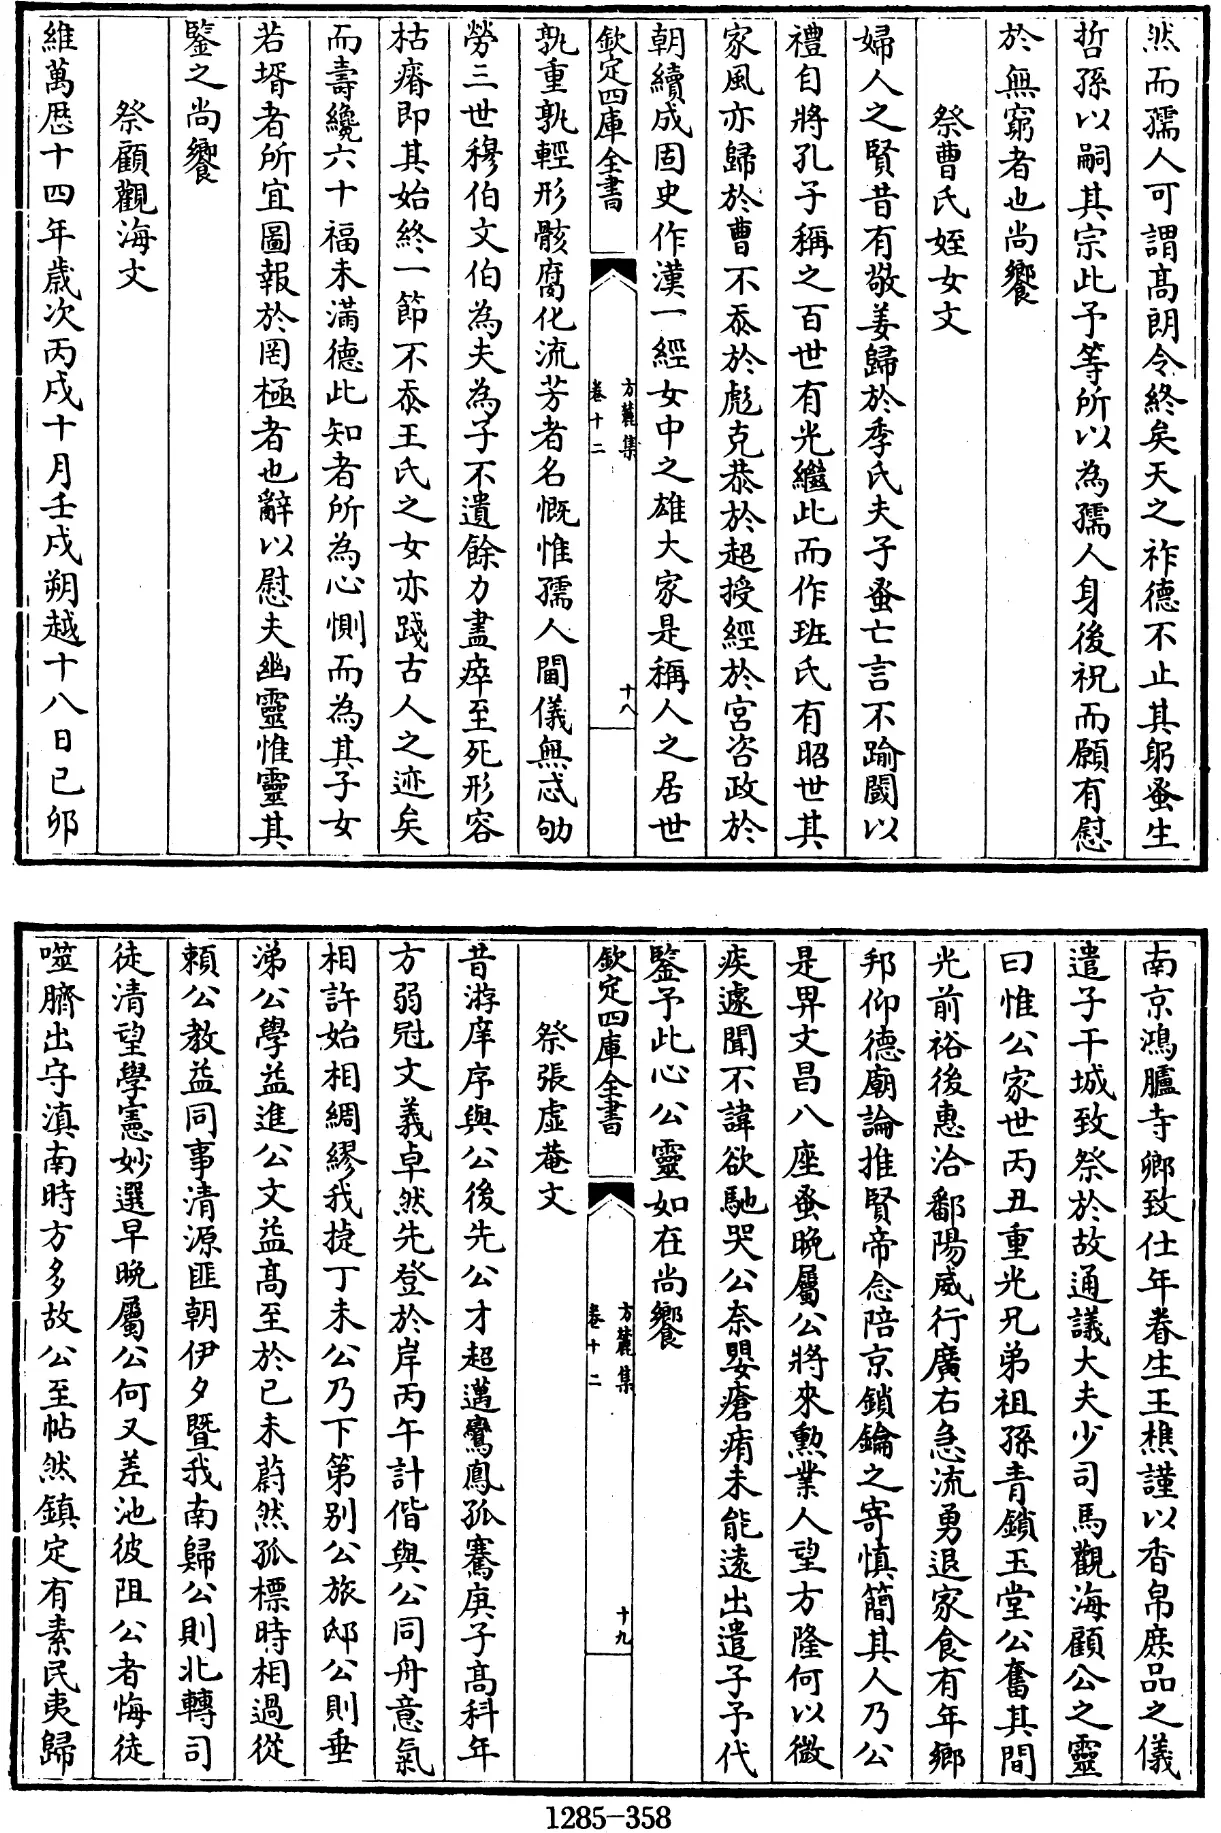 然而孺人可謂髙朗令終矣天之祚德不止其躬蚤生
哲孫以嗣其宗此予等所以為孺人身後祝而願有慰
於無窮者也尚饗
祭曹氏姪女文
婦人之賢昔有敬姜歸於季氏夫子蚤亡言不踰閾以
禮自將孔子稱之百世有光繼此而作班氏有昭世其
家風亦歸於曹不忝於彪克恭於超授經於宮咨政於
朝續成固史作漢一經女中之雄大家是稱人之居世
欽定四庫全書
方麓集
卷十二
十八
孰重孰輕形骸腐化流芳者名慨惟孺人閫儀無忒劬
勞三世穆伯文伯為夫為子不遺餘力盡瘁至死形容
枯瘠即其始終一節不忝王氏之女亦踐古人之迹矣
而壽纔六十福未滿德此知者所為心惻而為其子女
若壻者所宜圖報於罔極者也辭以慰夫幽靈惟靈其
鑒之尚饗
祭顧觀海文
維萬厯十四年歳次丙戌十月壬戌朔越十八日已卯
南京鴻臚寺卿致仕年眷生王樵謹以香帛庶品之儀
遣子干城致祭於故通議大夫少司馬觀海顧公之靈
曰惟公家世丙丑重光兄弟祖孫青鎖玉堂公奮其間
光前裕後惠洽鄱陽威行廣右急流勇退家食有年鄉
邦仰德廟論推賢帝念陪京鎖鑰之寄慎簡其人乃公
是畀文昌八座蚤晚屬公將來勲業人望方隆何以微
疾遽聞不諱欲馳哭公奈嬰瘡痏未能逺出遣子予代
鑒予此心公靈如在尚饗
欽定四庫全書
方麓集
卷十二
十九
祭張虛菴文
昔游庠序與公後先公才超邁鸞鳳孤騫庚子髙科年
方弱冠文義卓然先登於岸丙午計偕與公同舟意氣
相許始相綢繆我捷丁未公乃下第别公旅邸公則垂
涕公學益進公文益髙至於已未蔚然孤標時相過從
賴公教益同事清源匪朝伊夕暨我南歸公則北轉司
徒清望學憲妙選早晚屬公何又差池彼阻公者悔徒
噬臍出守滇南時方多故公至帖然鎮定有素民夷歸
1285-358